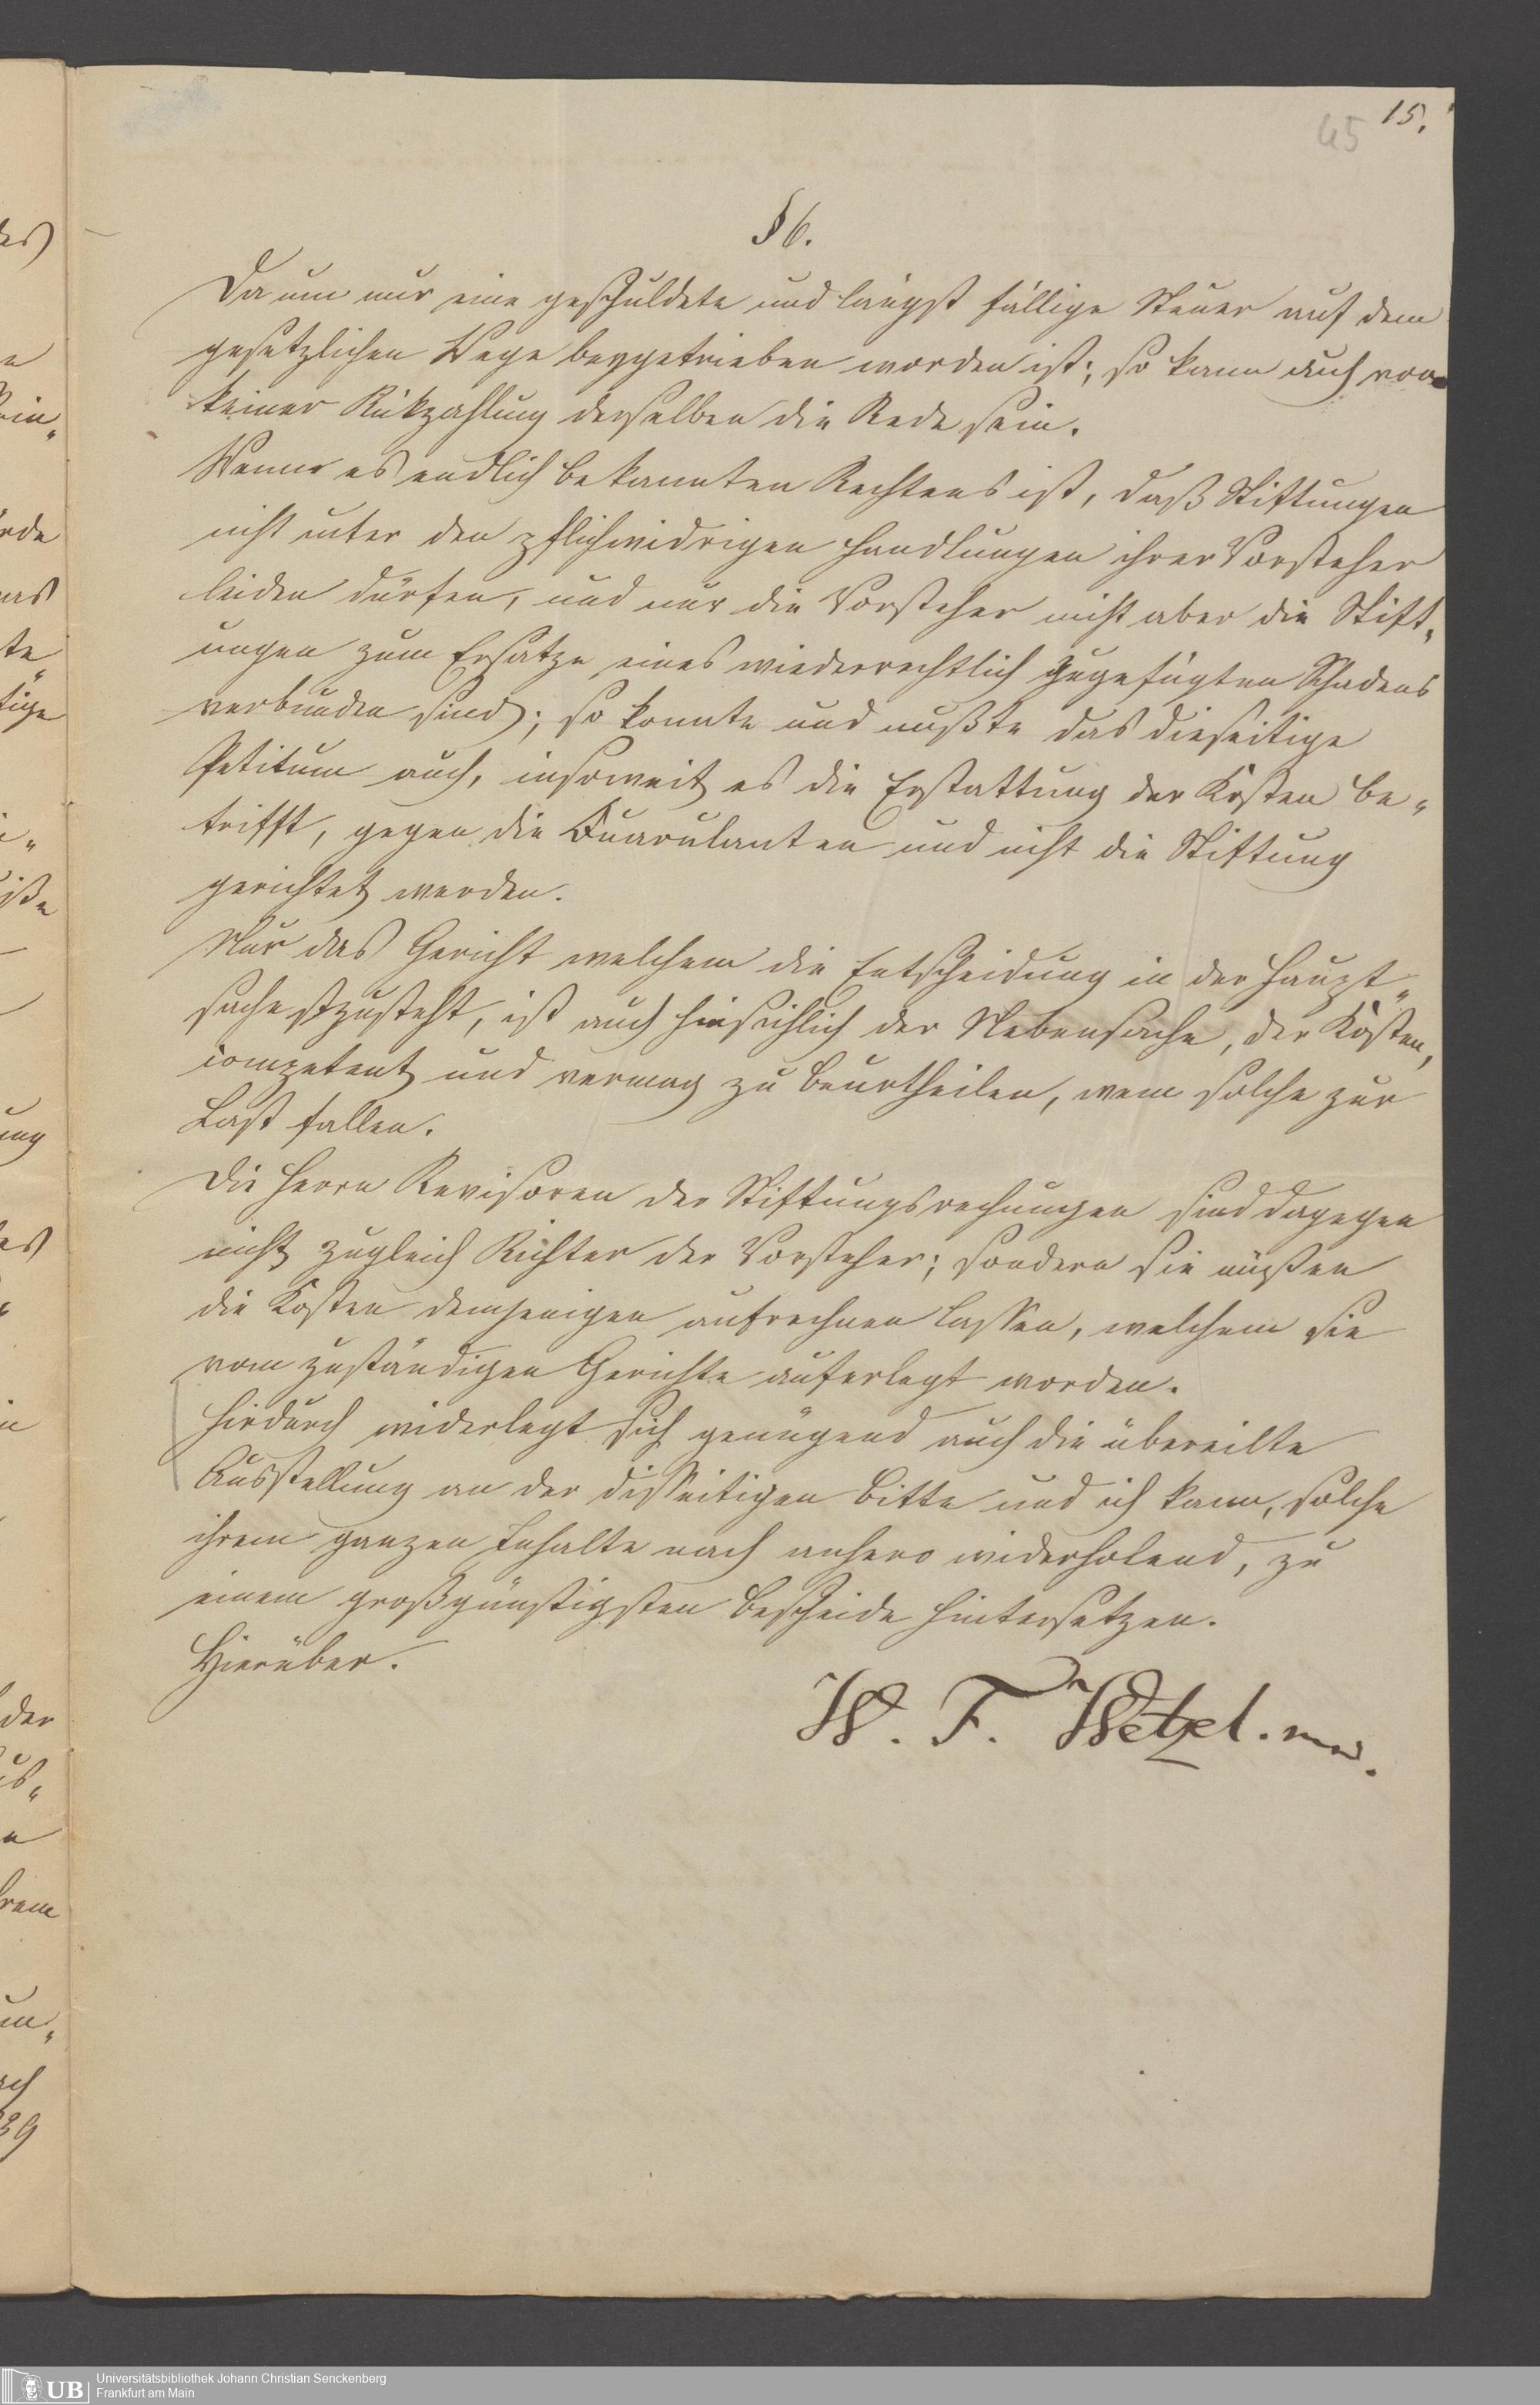 15.
45
§ 6.
Da nun nur eine geschuldete und längst fällige Steuer auf dem
gesetzlichen Wege beygetrieben worden ist; so kann auch von
keiner Rükzahlung derselben die Rede sein.
Wenn es endlich bekannten Rechtens ist, daß Stiftungen
nicht unter den pflichwidrigen Handlungen ihrer Vorsteher
leiden dürfen, und nur die Vorsteher nicht aber die Stift„
ungen zum Ersatze eines wiederrechtlich zugefügten Schadens
verbunden sind; so konnte und mußte das dieseitige
Petitum auch, insoweit es die Erstattung der Kosten be„
trifft, gegen die Querulanten und nicht die Stiftung
gerichtet werden.
Nur das Gericht welchem die Entscheidung in der Haupt„
sache zusteht, ist auch hinsichlich der Nebensache, der Kosten,
competent und vermag zu beurtheilen, wem solche zur
Last fallen.
Die Herrn Revisoren der Stiftungsrechnungen sind dagegen
nicht zugleich Richter der Vorsteher; sondern sie müßen
die Kosten demjenigen aufrechnen lassen, welchem sie
vom zuständigen Gerichte auferlegt worden.
Hirdurch widerlegt sich genügend auch die übereilte
Ausstellung an der disseitigen Bitte und ich kann, solche
ihrem ganzen Inhalte nach anhero widerholend, zu
einem großgünstigsten Bescheide hintersetzen.
Hierüber.
W. F. Wetzel.
Universitätsbibliothek Johann Christian Senckenberg
Frankfurt am Main
UB